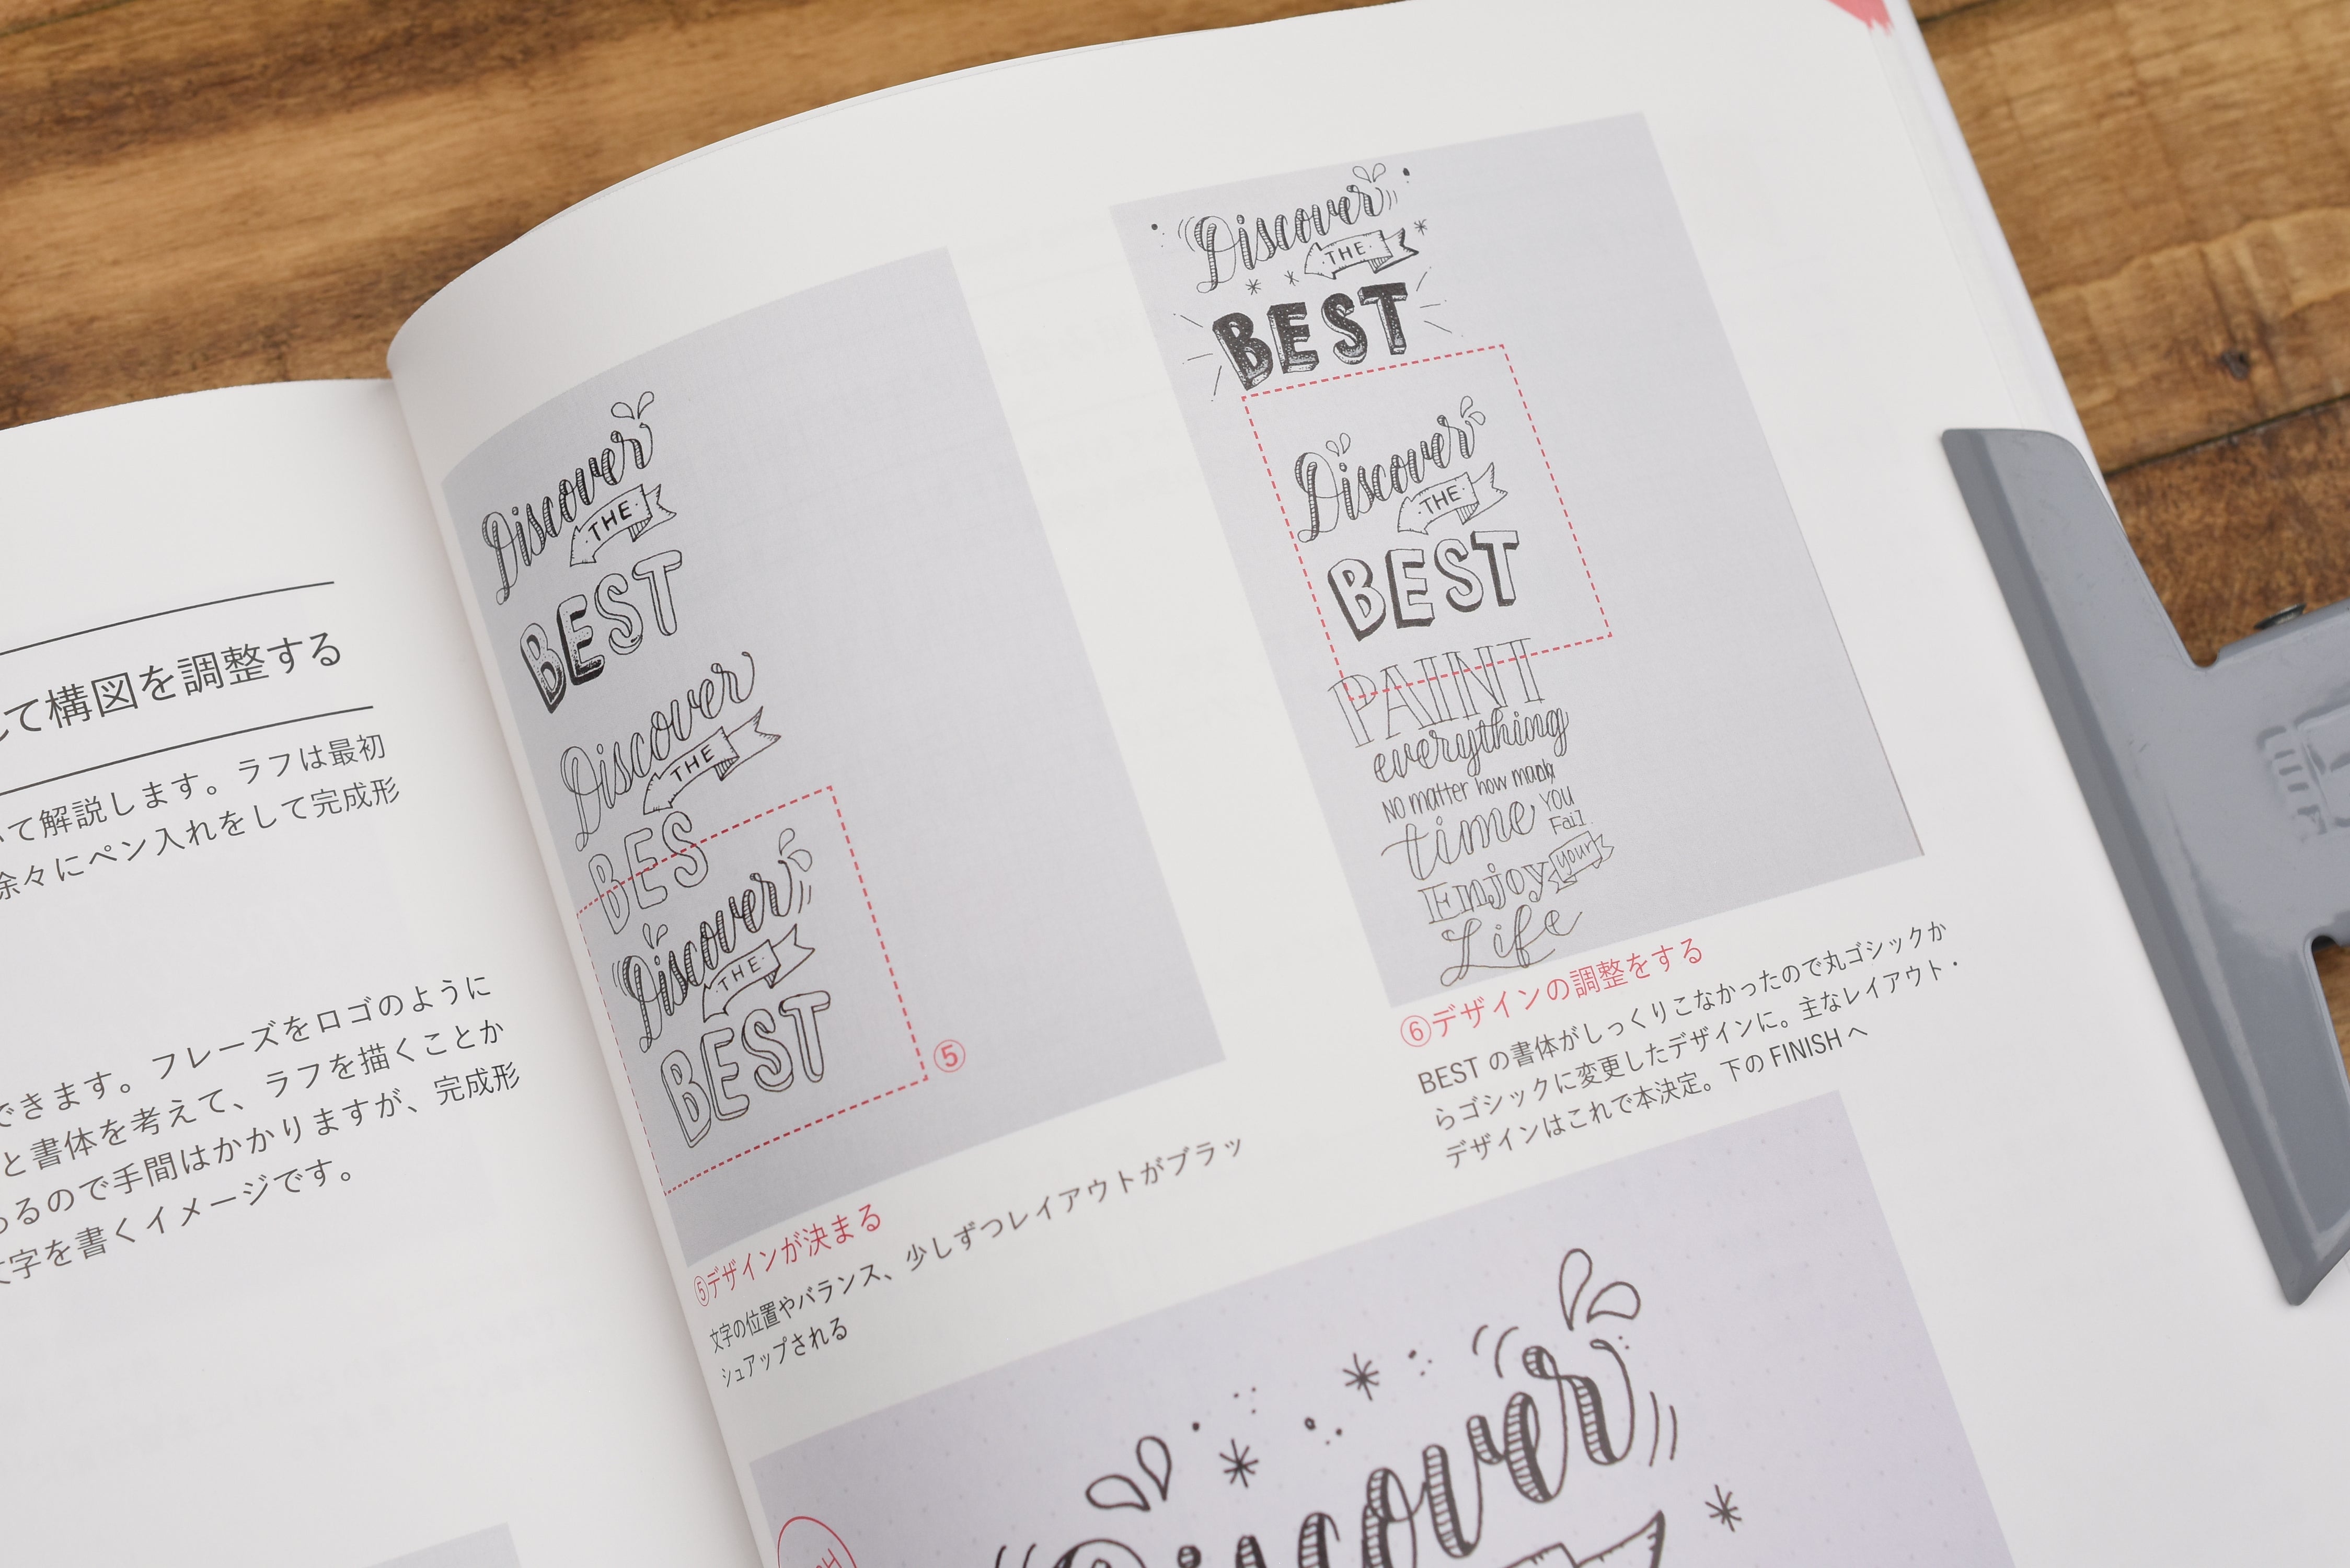 して構図を調整する
いて解説します。ラフは最初
余々にペン入れをして完成形
できます。フレーズをロゴのように
と書体を考えて、ラフを描くことか
るので手間はかかりますが、完成形
文字を書くイメージです。
Discover
THE
BEST
Discover
THE
BES
Discover
THE
BEST
⑤
⑤デザインが決まる
文字の位置やバランス、少しずつレイアウトがブラッ
シュアップされる
Discover
THE
BEST
Discover
THE
BEST
PAINT
everything
No matter how many
time YOU
Fail
Enjoy your
Life
⑥デザインの調整をする
BEST の書体がしっくりこなかったので丸ゴシックか
らゴシックに変更したデザインに。主なレイアウト・
デザインはこれで本決定。下の FINISH へ
Discover